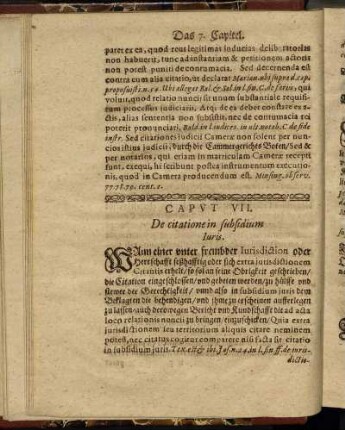 Das 7. Capitel.
paret ex eo, quod tres legitimas inducias deliberatorias
non habuerit, tunc ad instantiam & petitionem actoris
non potest puniri de contumacia. Sed decernenda est
contra eum alia citatio, ut declarat Marian.
voluit, quod relatio nuncii sit unum substantiale requisi-
tum processus judiciarii. Atque ex debet constare ex
actis, alias sententia non subsistit, nec de contumacia rei
poterit pronunciari,
Sed citationes judicii Cameræ non solent per nun-
cios istius judicii, durch die Cammergerichts Boten/ sed & per
notarios, qui etiam in matriculam Cameræ recepti
sunt, exequi, hi scribunt postea instrumentum executio-
nis, quod in Camera producendum est. Minsing. observ.
77. 78. 79. cent. 1.
CAPVT VII.
De citatione in subsidium
Iuris.
WAnn einer unter frembder Iurisdiction oder
Herrschafft seßhafftig oder sich extra iurisdictionem
Citantis erhelt, so sol an seine Obrigkeit geschrieben/
die Citation eingeschlossen/ und gebeten werden/ zu hülffe und
stewer der Gerechtigkeit/ unnd also in subsidium juris dem
Beklagten die behendigen/ und ihme zu erscheinen aufferlegen
zu lassen/ auch derowegen Bericht und Kundschafft die ad acta
loco relationis nuncii zu bringen/ einzuschicken/ Quia extra
jurisdictionem seu territorium aliquis citare neminem
potest, nec citatus cogitur comparere nisi facta sit citatio
in subsidium juris. Tex. est & ibi Jas. n. 24. in l. fin. ff. de juris-
dictio-